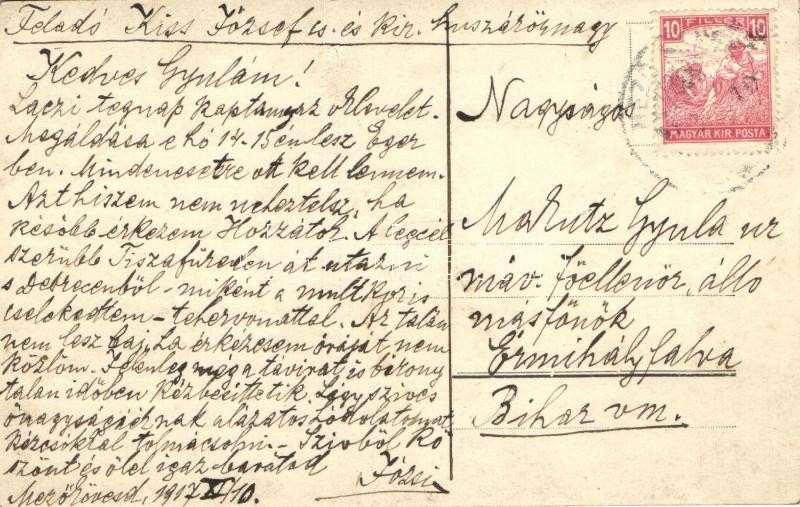 Feladó Kiss József cs. és kir. huszárőrnagy
Kedves Gyulám!
Laczi tegnap kaptam az levelet.
Megáldása e hó 14-15 én lesz Eger
ben. Mindenesetre ott kell lennem.
Azt hiszem nem neheztelsz, ha
később érkezem Hozzátok. A legcél
szerűbb Tiszafüreden át utazni
s Debrecenből - miként a multkor is
cselekedtem - tehervonattal. Az talán
nem lesz baj, ha érkezésem óráját nem
közlöm. Jelenleg még a távirat is bizony
talan időben kézbesíttetik. Légy szives
őnagyságáiénak alázatos hódolatomat
kézcsókkal tolmácsolni. - Szivből kö
szönt és ölel igaz barátod
Józsi
Mezőkövesd, 1917 XI/10.
10 FILLÉR 10
MAGYAR KIR. POSTA
Nagyságos
Makutz Gyula úr
máv. főellenőr, álló
másfőnök
Érmihályfalva
Bihar vm.